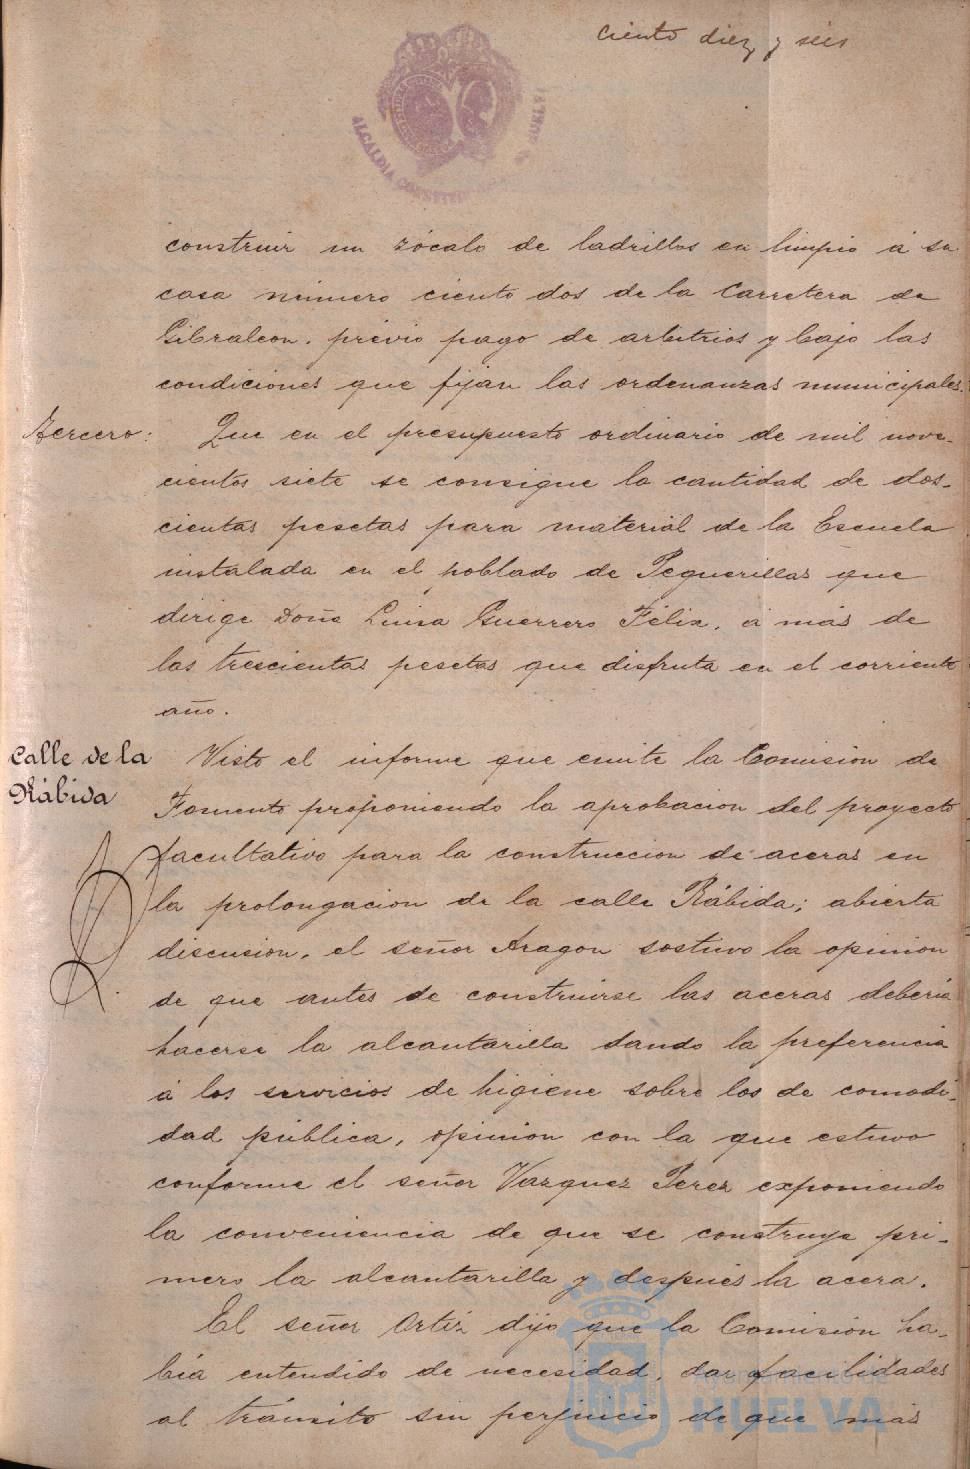 ciento diez y seis
ALCALDIA CONSTITUCIONAL DE HUELVA
construir un zócalo de ladrillos en limpio á su
casa número ciento dos de la Carretera de
Gibraleon, prévio pago de arbitrios y bajo las
condiciones que fijan las ordenanzas municipales.
Tercero: Que en el presupuesto ordinario de mil nove-
cientos siete se consigue la cantidad de dos-
cientas pesetas para material de la Escuela
instalada en el poblado de Peguerillas que
dirige Doña Luisa Guerrero Félix, á más de
las trescientas pesetas que disfruta en el corriente
año.
Calle de la
Rábida
Visto el informe que emite la Comision de
Fomento proponiendo la aprobacion del proyecto
facultativo para la construccion de aceras en
la prolongacion de la calle Rábida; abierta
discusion, el señor Aragon sostuvo la opinion
de que antes de construirse las aceras deberia
hacerse la alcantarilla dando la preferencia
á los servicios de higiene sobre los de comodi-
dad pública, opinion con la que estuvo
conforme el señor Vazquez Perez exponiendo
la conveniencia de que se construya pri-
mero la alcantarilla y después la acera.
El señor Ortíz dijo que la Comisión ha-
bía entendido de necesidad, dar facilidades
al tránsito sin perjuicio de que más
Ayuntamiento de
HUELVA